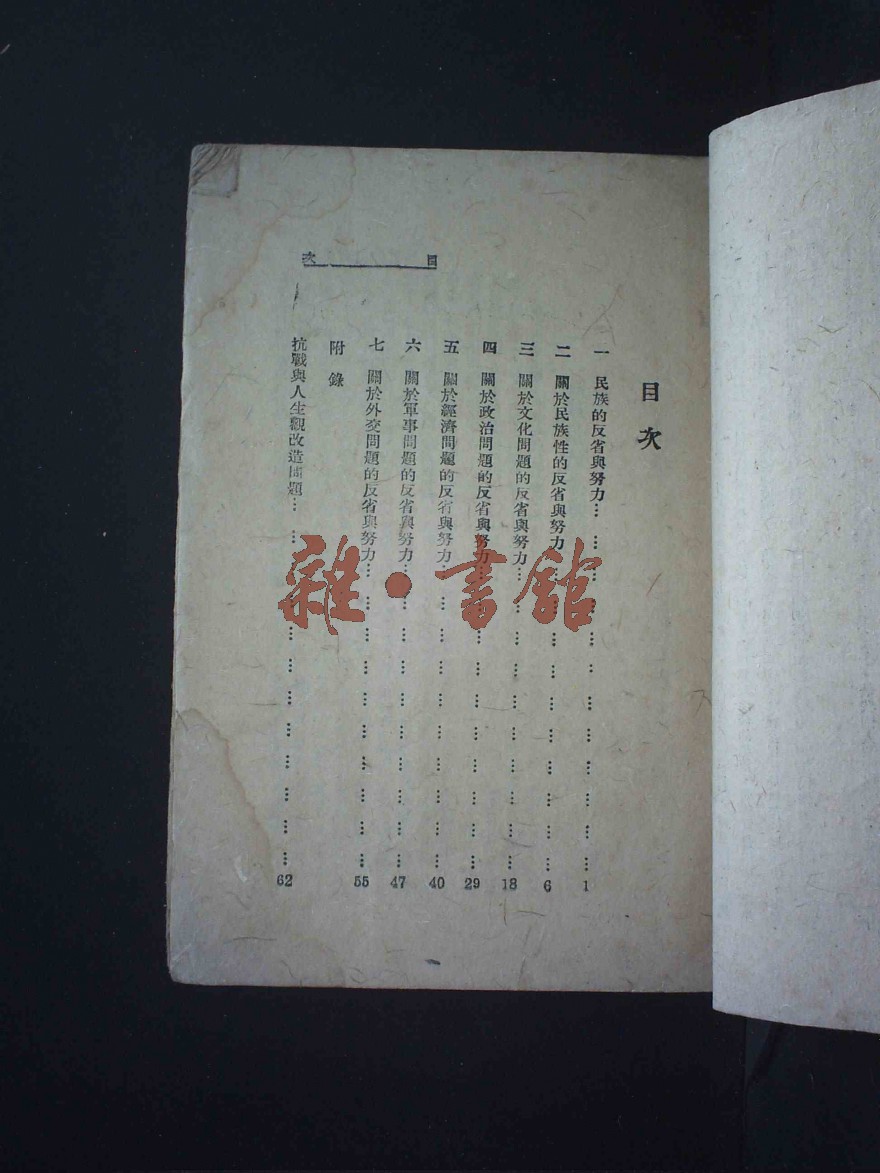 目次
目次
一 民族的反省與努力……………………………………1
二 關於民族性的反省與努力……………………………………6
三 關於文化問題的反省與努力……………………………………18
四 關於政治問題的反省與努力……………………………………29
五 關於經濟問題的反省與努力……………………………………40
六 關於軍事問題的反省與努力……………………………………47
七 關於外交問題的反省與努力……………………………………55
附錄
抗戰與人生觀改造問題……………………………………62
雜·書館